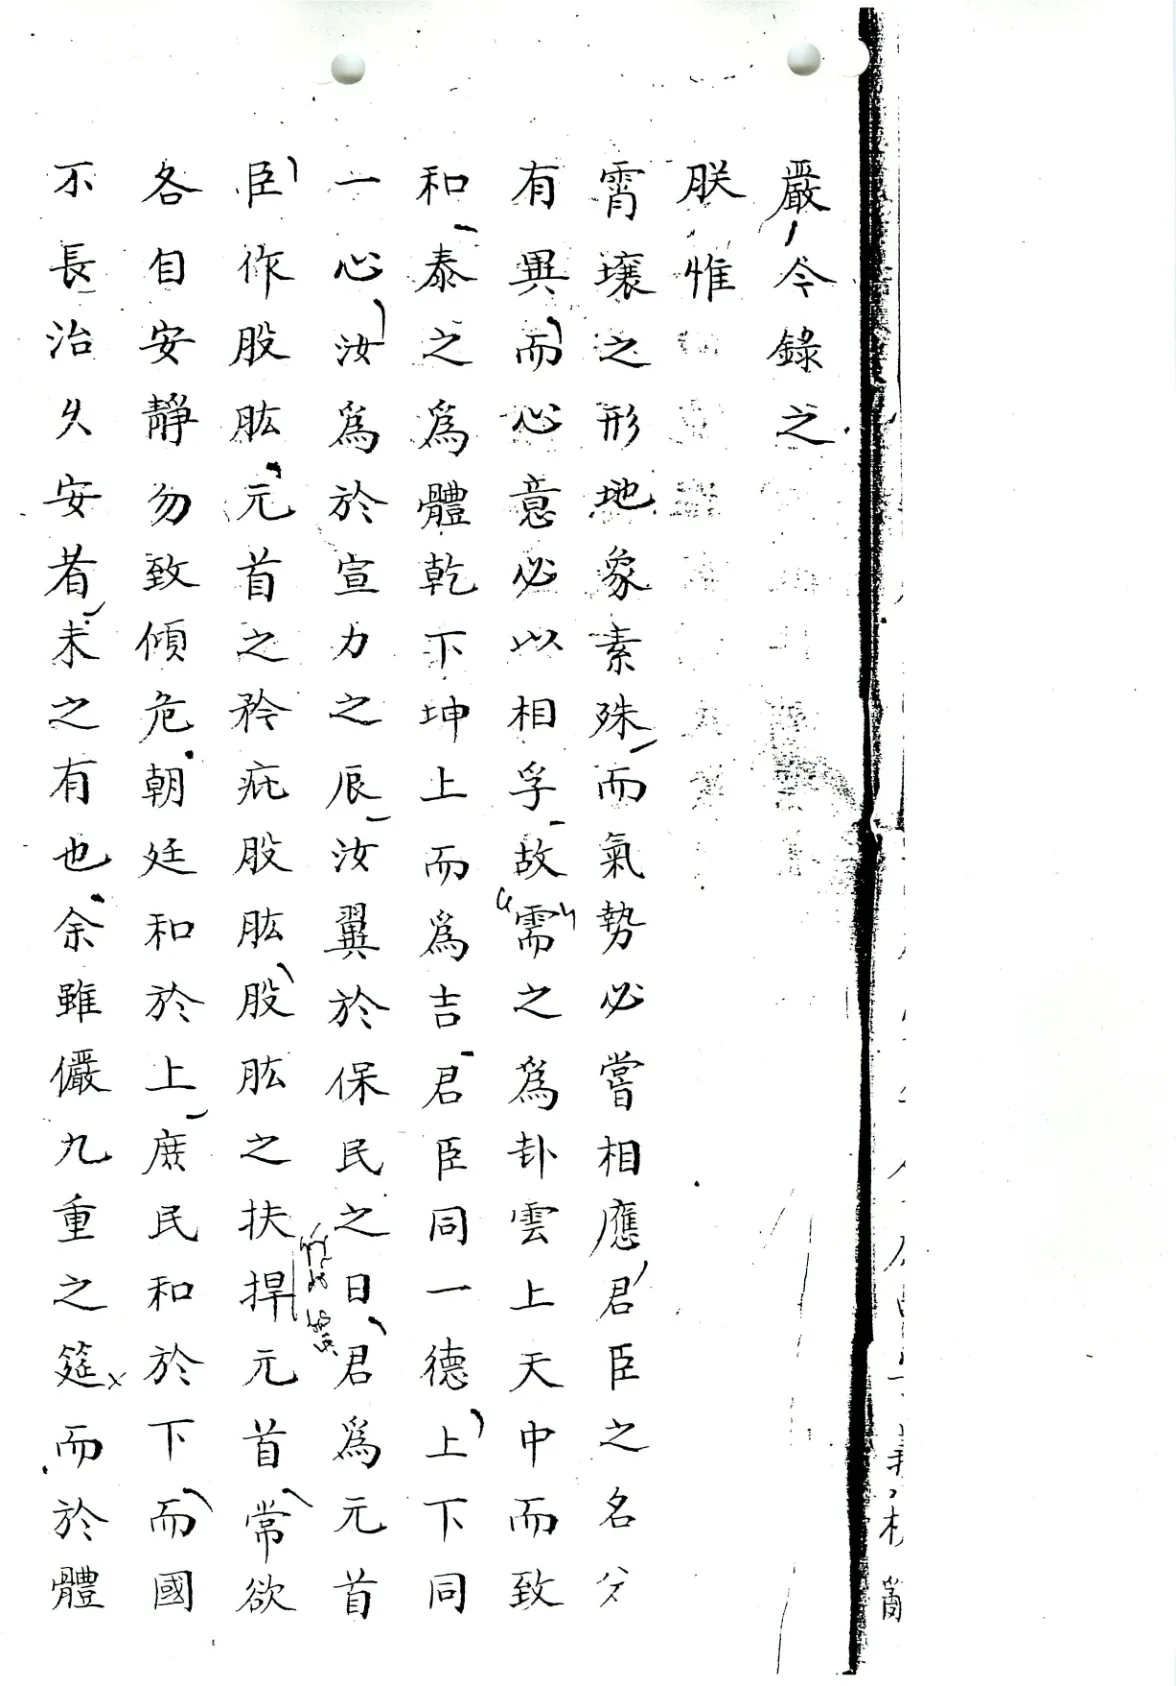 嚴今錄之
朕惟
霄壤之形地象素殊而氣勢必嘗相應君臣之名分
有異而心意必以相孚故需之爲卦雲上天中而致
和泰之爲體乾下坤上而爲吉君臣同一德上下同
一心汝爲於宣力之辰汝翼於保民之日君爲元首
臣作股肱元首之矜疪股肱股肱之扶捍元首常欲
各自安靜勿致傾危朝廷和於上庶民和於下而國
不長治久安者未之有也余雖儼九重之筵而於體